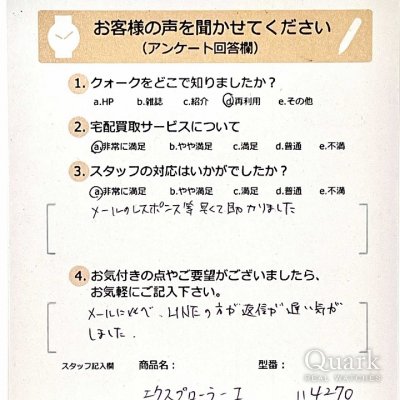 お客様の声を聞かせてください
(アンケート回答欄)
1. クォークをどこで知りましたか?
a.HP b.雑誌 c.紹介 d.再利用 e.その他
2. 宅配買取サービスについて
a.非常に満足 b.やや満足 c.満足 d.普通 e.不満
3. スタッフの対応はいかがでしたか?
a.非常に満足 b.やや満足 c.満足 d.普通 e.不満
メールのレスポンス等早くて助かりました
4. お気付きの点やご要望がございましたら、
お気軽にご記入下さい。
メールに比べ、LINEの方が返信が遅い気が
しました.
スタッフ記入欄 商品名: 型番:
エクスプローラーI 114270
Quark
REAL WATCHES